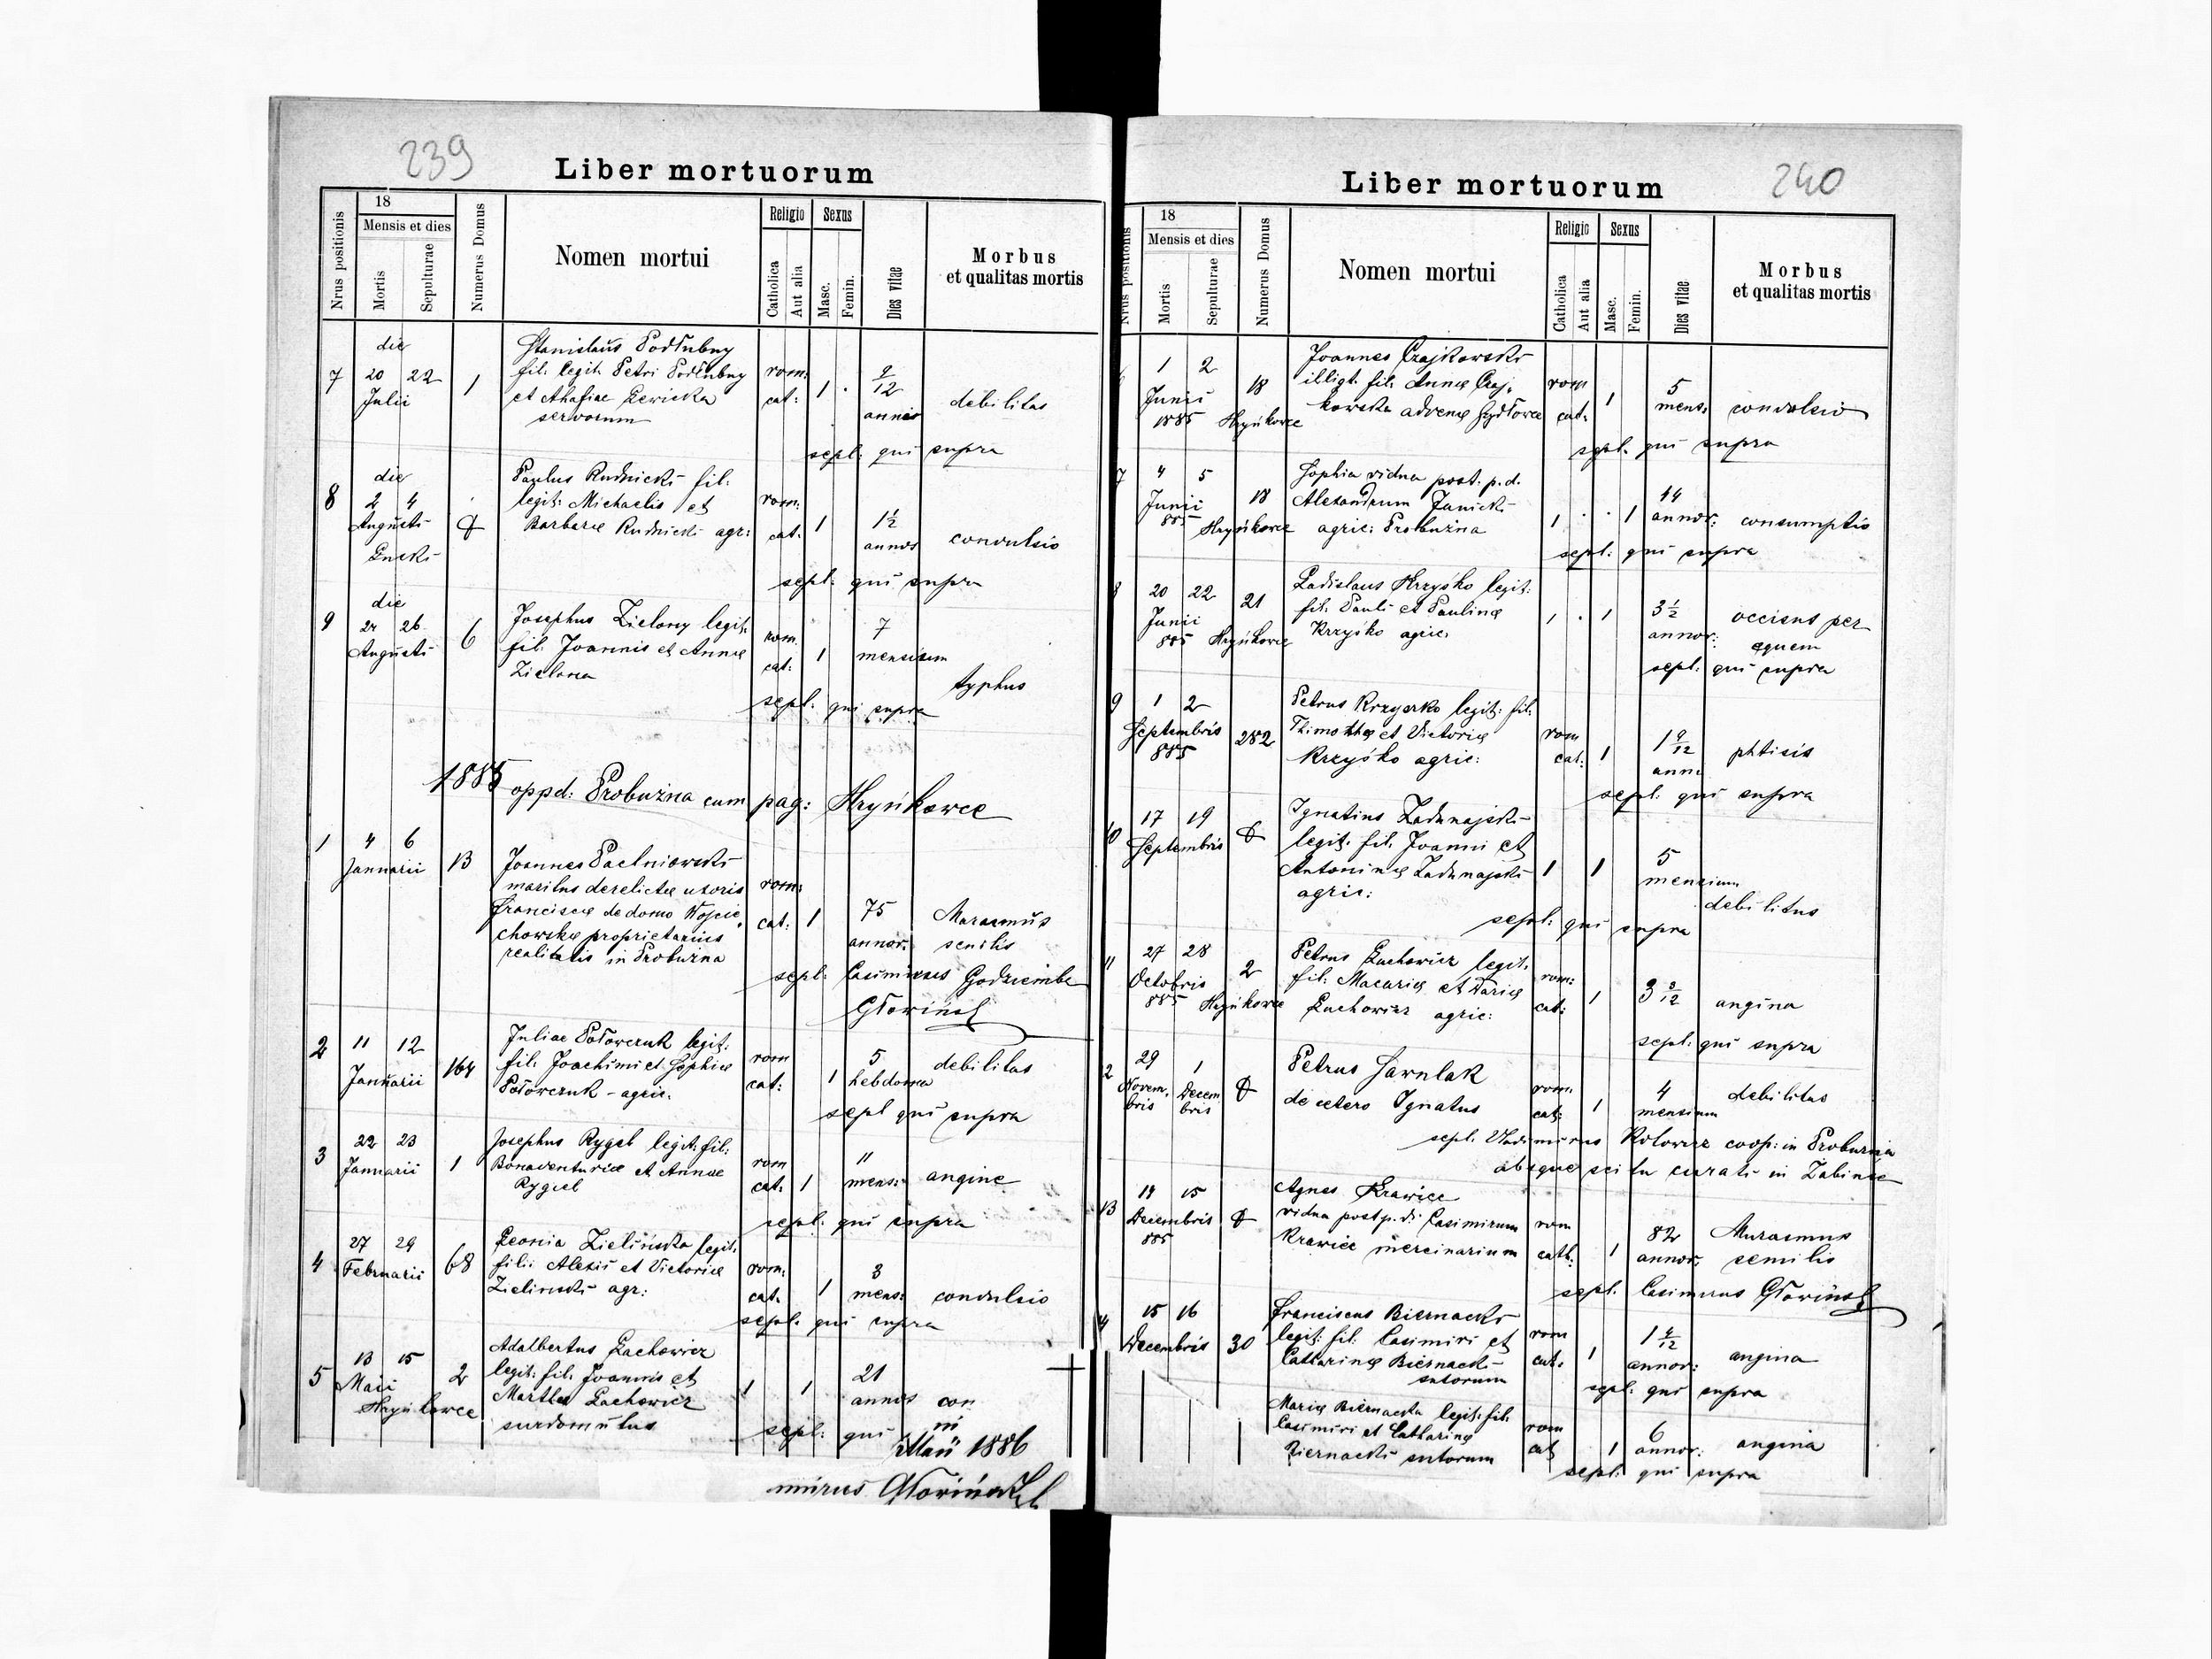 239
Liber mortuorum
Nrus positionis
18
Mensis et dies
Mortis
Sepulturae
Numerus Domus
Nomen mortui
Religio
Catholica
Aut alia
Sexus
Masc.
Femin.
Dies vitae
Morbus
et qualitas mortis
die
7 20 22 Julii 1
Stanislaus Podłubny
fil. legit. Petri Podłubny
et Ahafiae
servorum
rom: cat: 1 9/12 annis debilitas
sepl: qui supra
die
8 2 4 Augusti
Paulus Rudnicki fil.
legit. Michaelis et
Barbarae Rudnicki agr:
rom: cat: 1 1½ annos convulsio
sepl. qui supra
die
9 24 26 Augusti 6
Josephus Zielony legit.
fil. Joannis et Annae
Zielona
rom. cat: 1 7 mensium typhus
sepl. qui supra
1885 oppd: Probużna cum pag: Hryńkowce
1 4 6 Januarii 13
Joannes
maritus derelictae uxoris
Franciscae de domo Wojcie
chowska proprietarius
realitatis in Probużna
rom: cat: 1 75 annor. Marasmus senilis
sepl. Casimirus Godziemba
Głowiński
2 11 12 Januarii 164
Juliae Połowczuk legit:
fil. Joachimi et Sophiae
Połowczuk - agric.
rom cat: 1 5 hebdoma debilitas
sepl qui supra
3 22 23 Januarii 1
Josephus Rygel legit: fil:
Bonaventurae et Annae
Rygiel
rom cat. 1 11 mens: angine
sepl. qui supra
4 27 29 Februarii 68
Leonia Zielińska legit.
filii Alexii et Victoriae
Zielinski agr:
rom: cat. 1 3 mens: convulsio
sepl. qui supra
5 13 15 Maii 2
Hryńkowce
Adalbertus Lachowicz
legit: fil. Joannis et
Martha Lachowicz
surdomutus
1 1 21 annos con
sepl: qui
Maii 1886
mirus Głowiński
240
Liber mortuorum
Nrus positionis
18
Mensis et dies
Mortis
Sepulturae
Numerus Domus
Nomen mortui
Religio
Catholica
Aut alia
Sexus
Masc.
Femin.
Dies vitae
Morbus
et qualitas mortis
1 2 Junii 1885 18 Hryńkowce
Joannes Czajkowski
illigt. fil. Annae Czaj,
kowska advenae
rom cat: 1 5 mens: convulsio
sepl. qui supra
7 4 5 Junii 885 18 Hryńkowce
Sophia vidua post. p. d.
Alexandrum Janicki
agric: Probużna
1 . . 1 44 annor: consumptio
sepl: qui supra
8 20 22 Junii 885 21 Hryńkowce
Ladislaus Krzyśko legit:
fil. Pauli et Paulinae
Krzyśko agric.
1 . 1 3½ annor: occisus per
equem
sepl: qui supra
9 1 2 Septembris 885 282
Petrus Krzyśko legit: fil.
Thimothae et Victoriae
Krzyśko agric:
rom cat: 1 1 9/12 anni phtisis
sepl: qui supra
10 17 19 Septembris
Ignatius Zadunajski
legit. fil. Joanni et
Antoninae Zadunajski
agric:
1 1 5 mensium
debilitas
sepl: qui supra
11 27 28 Octobris 885 2 Hryńkowce
Petrus Lachowicz legit.
fil. Macariae et Dariae
Lachowicz agric:
rom: cat: 1 3 angina
sepl: qui supra
2 29 Novem. bris 1 Decem bris
Petrus Sawulak
de cetero Ignatus
rom. cat: 1 4 mensium debilitas
sepl. Vladimirus coop: in Probużna
absque scitu curati in Żabińce
13 14 15 Decembris 885
Agnes Krawiec
vidua post p. d: Casimirum
Krawiec mercinarium
rom cath: 1 82 annor: Marasmus
senilis
sepl. Casimirus Głowiński
15 16 Decembris 30
Franciscus Biernacki
legit: fil. Casimiri et
Catharinae Biernacki
sutorum
rom cat: 1 annor: angina
sepl: qui supra
Maria Biernacka legit: fil.
Casimiri et Catharinae
Biernacki sutorum
rom cat 1 6 annor: angina
sepl: qui supra